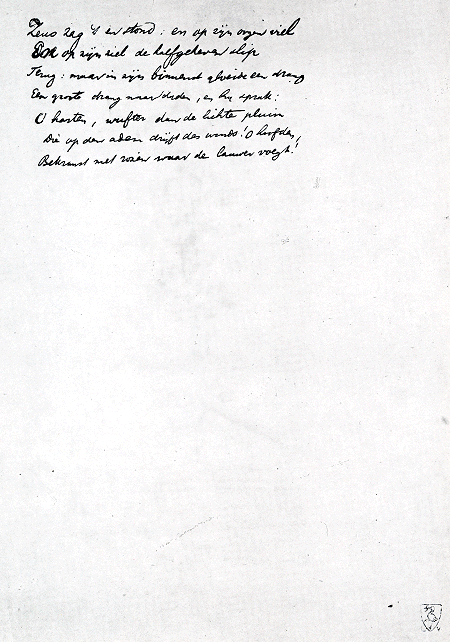 Zeus zag 't er stond: en op zijn oogen viel
En op zijn ziel de half geheven slip
Terug: maar in zijn binnenst gloeide een drang
Een groote drang naar daden, en hij sprak:
O harten, wufter dan de lichte pluim
Die op den adem drijft des winds! O hoofden,
Bekranst met rozen waar de lauwer voegt!